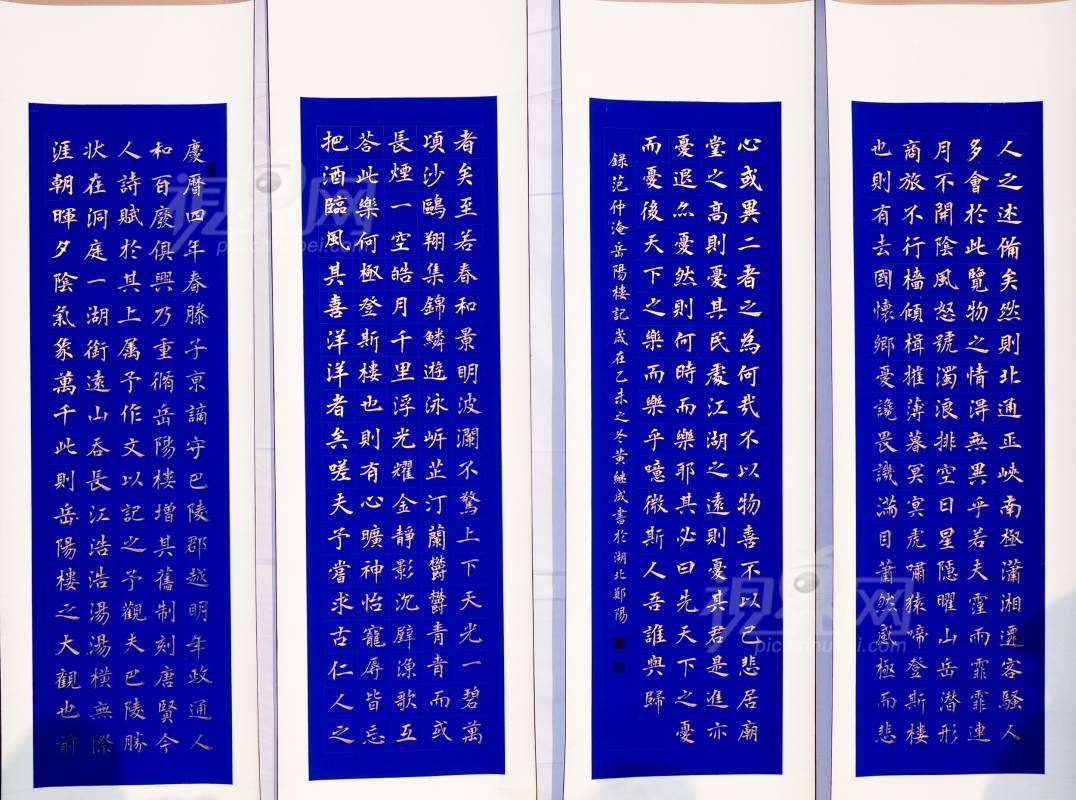 慶曆四年春滕子京謫守巴陵郡越明年政通人
和百廢俱興乃重脩岳陽樓增其舊制刻唐賢今
人詩賦於其上属予作文以記之予觀夫巴陵勝
状在洞庭一湖銜遠山吞長江浩浩湯湯橫無際
涯朝暉夕陰氣象萬千此則岳陽樓之大觀也前
人之述備矣然則北通巫峽南極瀟湘遷客騷人
多會於此覽物之情淂無異乎若夫霪雨霏霏連
月不開陰風怒號濁浪排空日星隱曜山岳潛形
商旅不行檣傾楫摧薄暮冥冥虎嘯猿啼登斯樓
也則有去國懷鄉憂讒畏譏滿目蕭然感極而悲
者矣至若春和景明波瀾不驚上下天光一碧萬
頃沙鷗翔集錦鱗遊泳岸芷汀蘭鬱鬱青青而或
長煙一空皓月千里浮光耀金靜影沉璧漁歌互
荅此樂何極登斯樓也則有心曠神怡寵辱皆忘
把酒臨風其喜洋洋者矣嗟夫予嘗求古仁人之
心或異二者之為何哉不以物喜不以己悲居廟
堂之高則憂其民處江湖之遠則憂其君是進亦
憂退亦憂然則何時而樂耶其必曰先天下之憂
而憂後天下之樂而樂乎噫微斯人吾誰與歸
録范仲淹岳陽樓記歲在乙未之冬黄継成書於湖北鄖陽
视界网
pic.cnhubei.com
视界网
pic.cnhubei.com